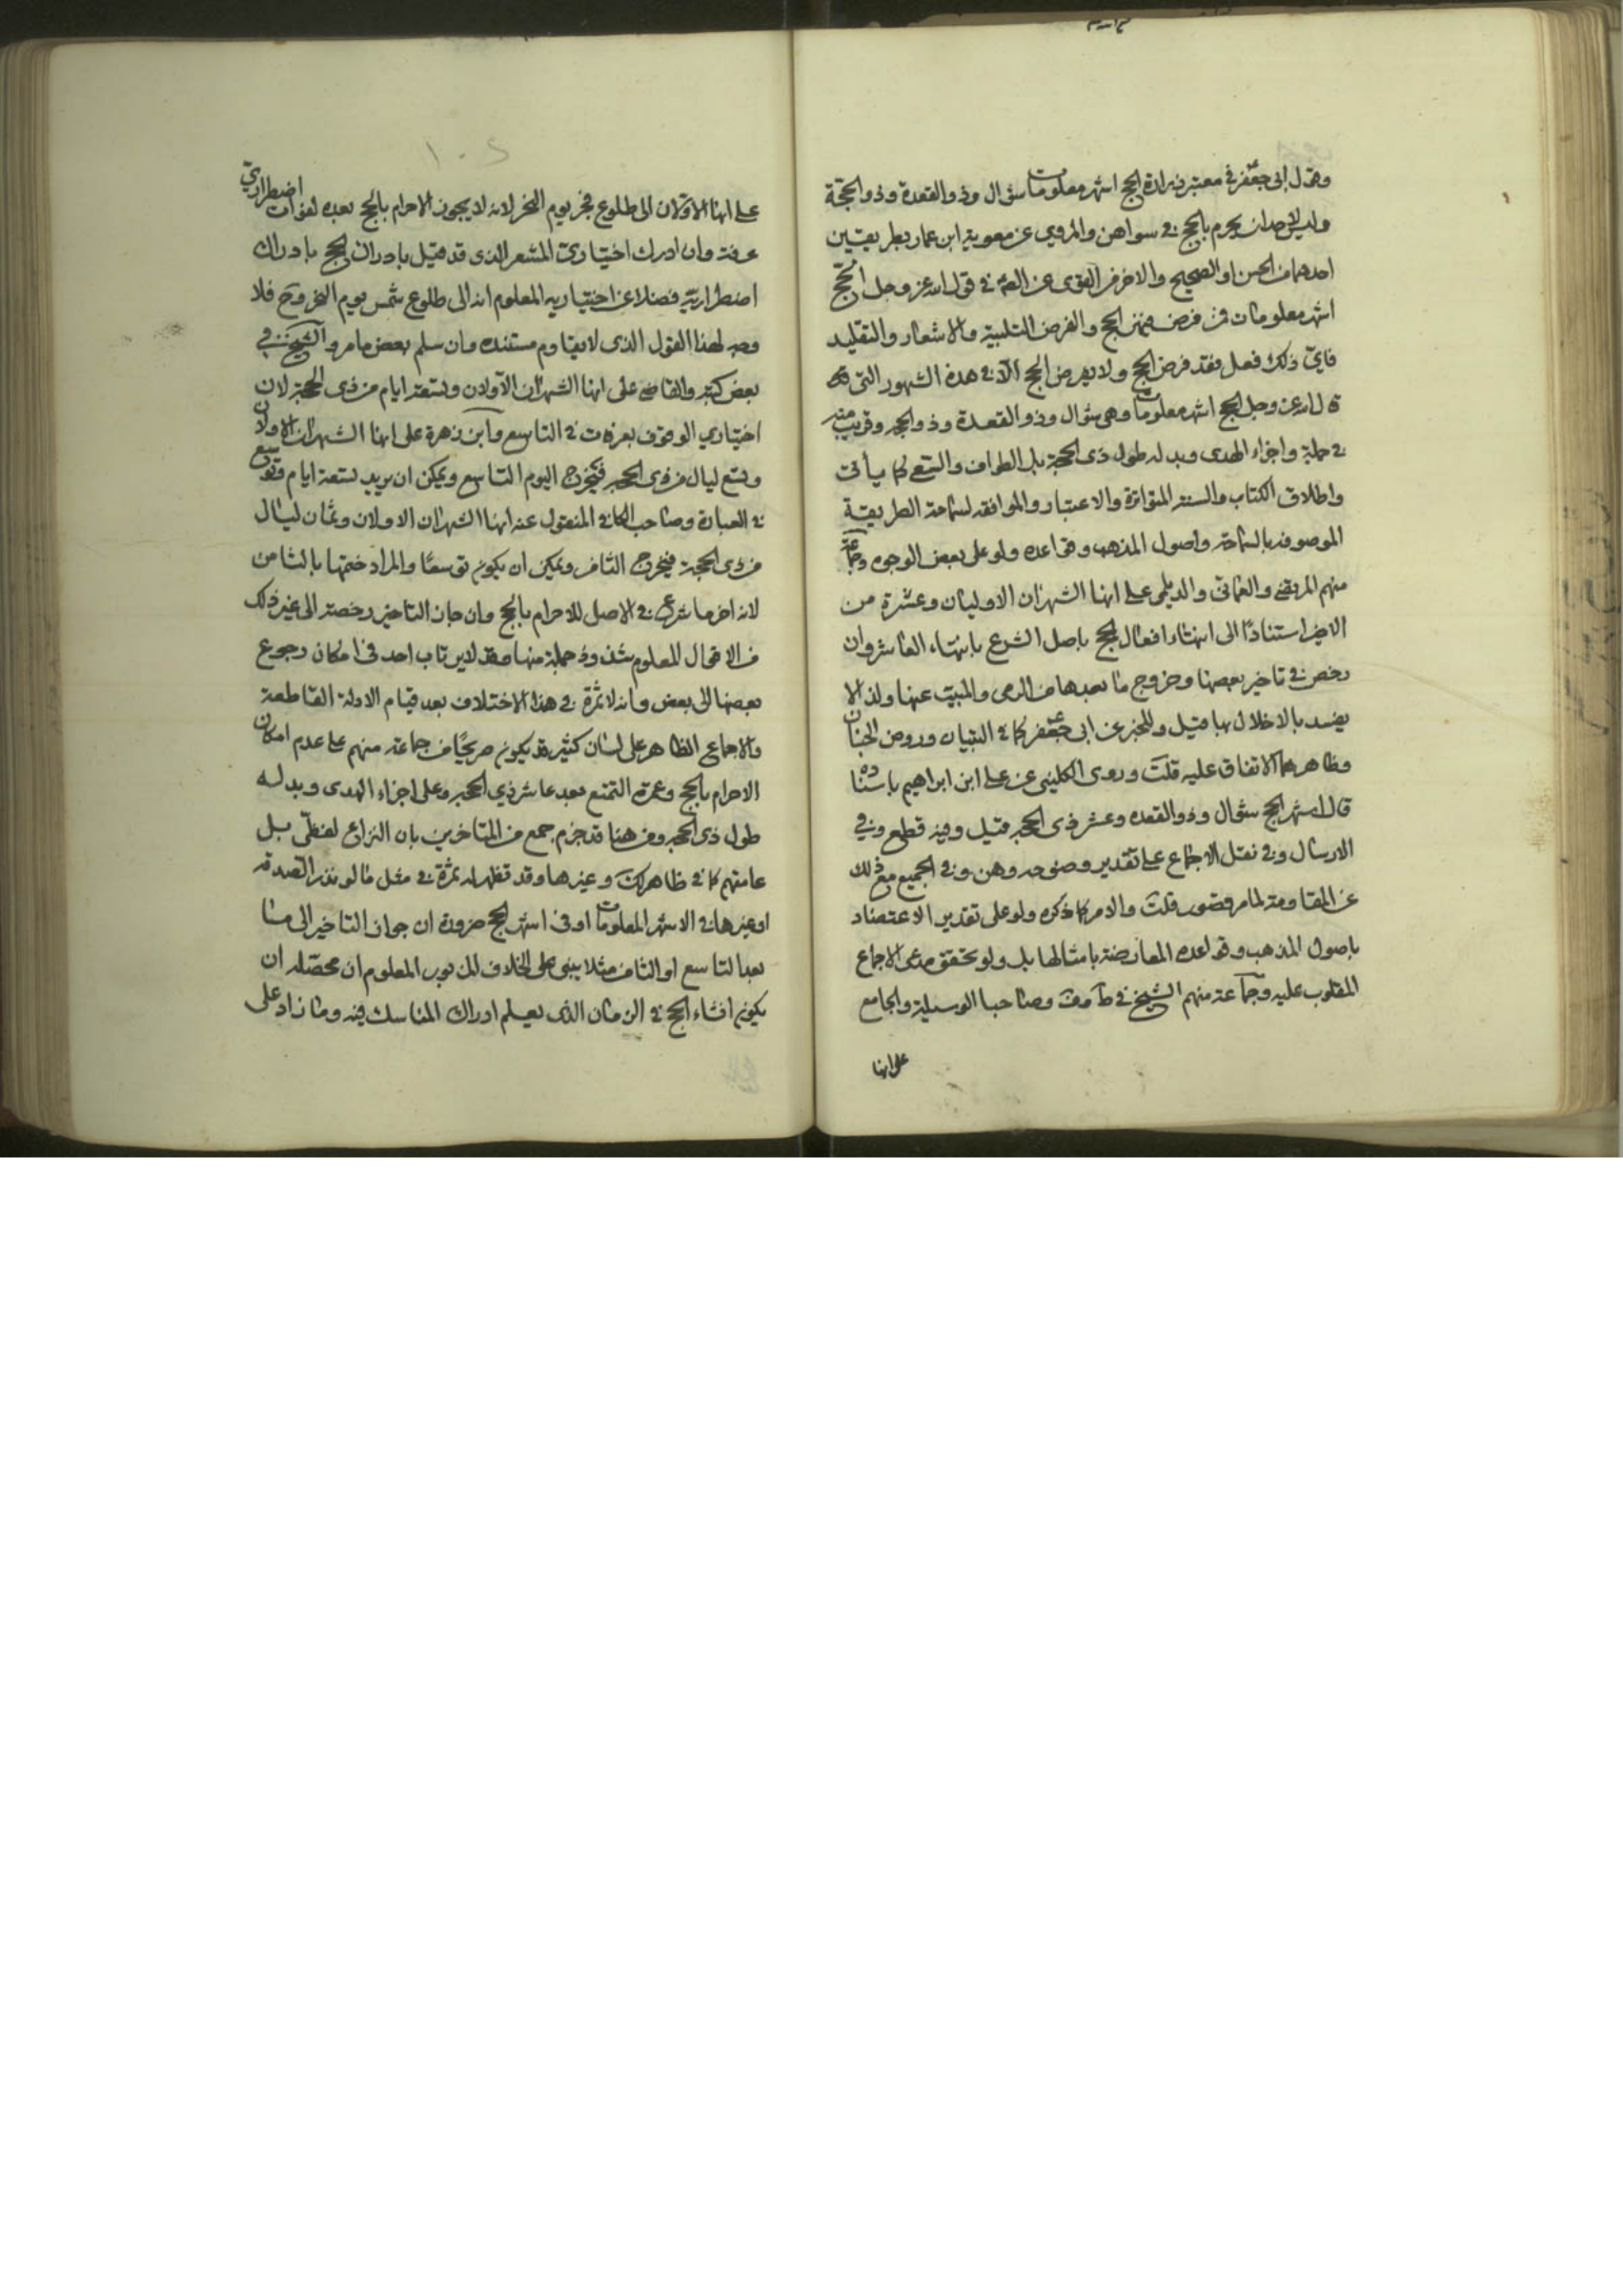 وقول ابى جعفر في معتبر زرارة الحج اشهر معلومات شوال وذو القعدة وذو الحجّة
وليس لاحد ان يحرم بالحج في سواهن والمروي عن معوية ابن عمار بطريقين
احدهما من الحسن او الصحيح والاخر من القوى عن الصم في قول الله عز وجل الحجّ
اشهر معلومات فمن فرض فيهن الحج والفرض التلبية والاشعار والتقليد
فاىّ ذلك فعل فقد فرض الحج ولا يفرض الحج الّا في هذه الشهور التى
قال الله عز وجل الحج اشهر معلومات وهى شوال وذو القعدة وذو الحجه وقريب منه
في جملة واجزاء الهدى وبدله طول ذى الحجة بل الطواف والسعى كما يأتى
واطلاق الكتاب والسنة المتواترة والاعتبار والموافقه لسماحة الطريقة
الموصوفه بالسماحة واصول المذهب وقواعده ولو على بعض الوجوه وجماعة
منهم المرتضى والعمانى والديلمى على انها الشهران الاوليان وعشرة من
الاخير استنادًا الى انتهاء افعال الحج باصل الشرع بانتهاء العاشر وان
رخص في تاخير بعضها وخروج ما بعدها من الرمى والمبيت عنها ولذا لا
يفسد بالاخلال بها قيل وللخبر عن ابى جعفر كما في التبيان وروض الجنان
وظاهرهما الاتفاق عليه قلت وروى الكلينى عن على ابن ابراهيم باسناده
قال اشهر الحج شوال وذو القعده وعشر ذى الحجه قيل وفيه قطع وفي
الارسال وفي نقل الاجماع على تقدير وضوحه وهن وفي الجميع مع ذلك
عن المقاومة لما مر قصور قلت والامر كما ذكره ولو على تقدير الاعتضاد
باصول المذهب وقواعده المعارضة بامثالها بل ولو تحقق مدعى الاجماع
المقلوب عليه وجماعة منهم الشيخ في ط وف وصاحبا الوسيلة والجامع
على انها
١٠٢
على انها الاوّلان الى طلوع فجر يوم النحر لانه لا يجوز الاحرام بالحج بعده لفوات اضطراريّ
عرفة وان ادرك اختيارى المشعر الذى قد قيل بادراك الحج بادراك
اضطراريّه فضلا عن اختياريه المعلوم انه الى طلوع شمس يوم النحر وح فلا
وجه لهذا القول الذى لا يقاوم مستنده وان سلم بعض ما مر والشيخ في
بعض كتبه والقاضى على انها الشهران الاولان وتسعة ايام من ذى الحجة لان
اختياري الوقوف بعرفات في التاسع وابن زهرة على انها الشهران الاولان
وتسع ليال من ذى الحجه فيخرج اليوم التاسع ويمكن ان يريد تسعة ايام وتوسع
في العبارة وصاحب الكافى المنقول عنه انها الشهران الاولان وثمان ليال
من ذى الحجة فيخرج الثامن ويمكن ان يكون توسعًا والمراد ختمها بالثامن
لانه اخر ما شرع في الاصل للاحرام بالحج وان جاز التاخير رخصة الى غير ذلك
من الاقوال المعلوم شذوذ جملة منها وقد لا يرتاب احد فى امكان رجوع
بعضها الى بعض وانه لا ثمرة في هذا الاختلاف بعد قيام الادلة القاطعة
والاجماع الظاهر على لسان كثير قد يكون صريحًا من جماعة منهم على عدم امكان
الاحرام بالحج وعمرة التمتع بعد عاشر ذي الحجه وعلى اجزاء الهدى وبدله
طول ذى الحجه ومن هنا قد جزم جمع من المتاخرين بان النزاع لفظىّ بل
عامتهم كما في ظاهر ك وغيرها وقد تظهر له ثمرة في مثل ما لو نذر الصدقه
او غيرها في الاشهر المعلومات او فى اشهر الحج ضرورة ان جواز التاخير الى ما
بعد التاسع او الثامن مثلا يبنى على الخلاف المزبور المعلوم ان محصّله ان
يكون انشاء الحج في الزمان الذى يعلم ادراك المناسك فيه وما زاد على